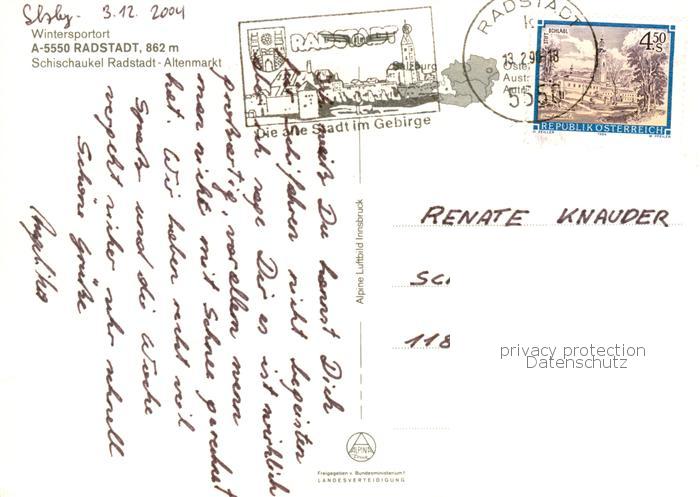 Slzbg. 3.12.2004
Wintersportort
A-5550 RADSTADT, 862 m
Schischaukel Radstadt - Altenmarkt
RADSTADT
Die alte Stadt im Gebirge
Salzburg
RADSTADT
13.2.9 -18
5550
SCHLÄGL
4.50
S
REPUBLIK ÖSTERREICH
weiß Du kannst Dich
Schifahren nicht begeistern
ich sage Dir es ist wirklich
großartig, vor allem wenn
man nicht mit Schnee gerechnet
hat. Wir haben recht viel
Spaß und die Woche
vergeht sicher sehr schnell
Schöne Grüße
Angelika
Alpine Luftbild Innsbruck
RENATE KNAUDER
118
privacy protection
Datenschutz
ALPINE
Druck
Freigegeben v. Bundesministerium f.
LANDESVERTEIDIGUNG